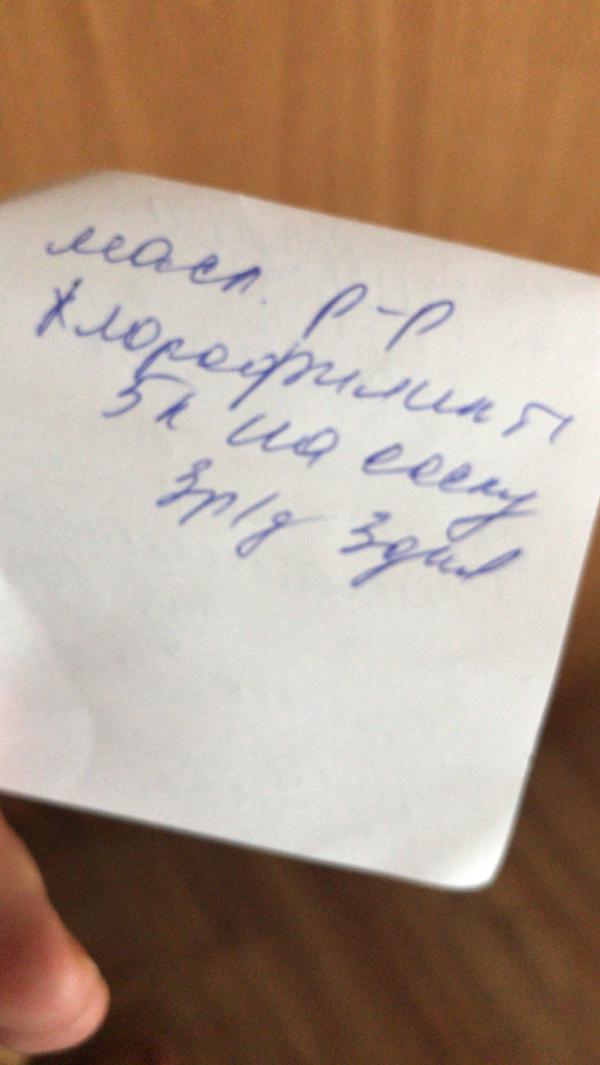 масл. р-р
Хлорофилипт
5к на соску
3р/д 3 дня